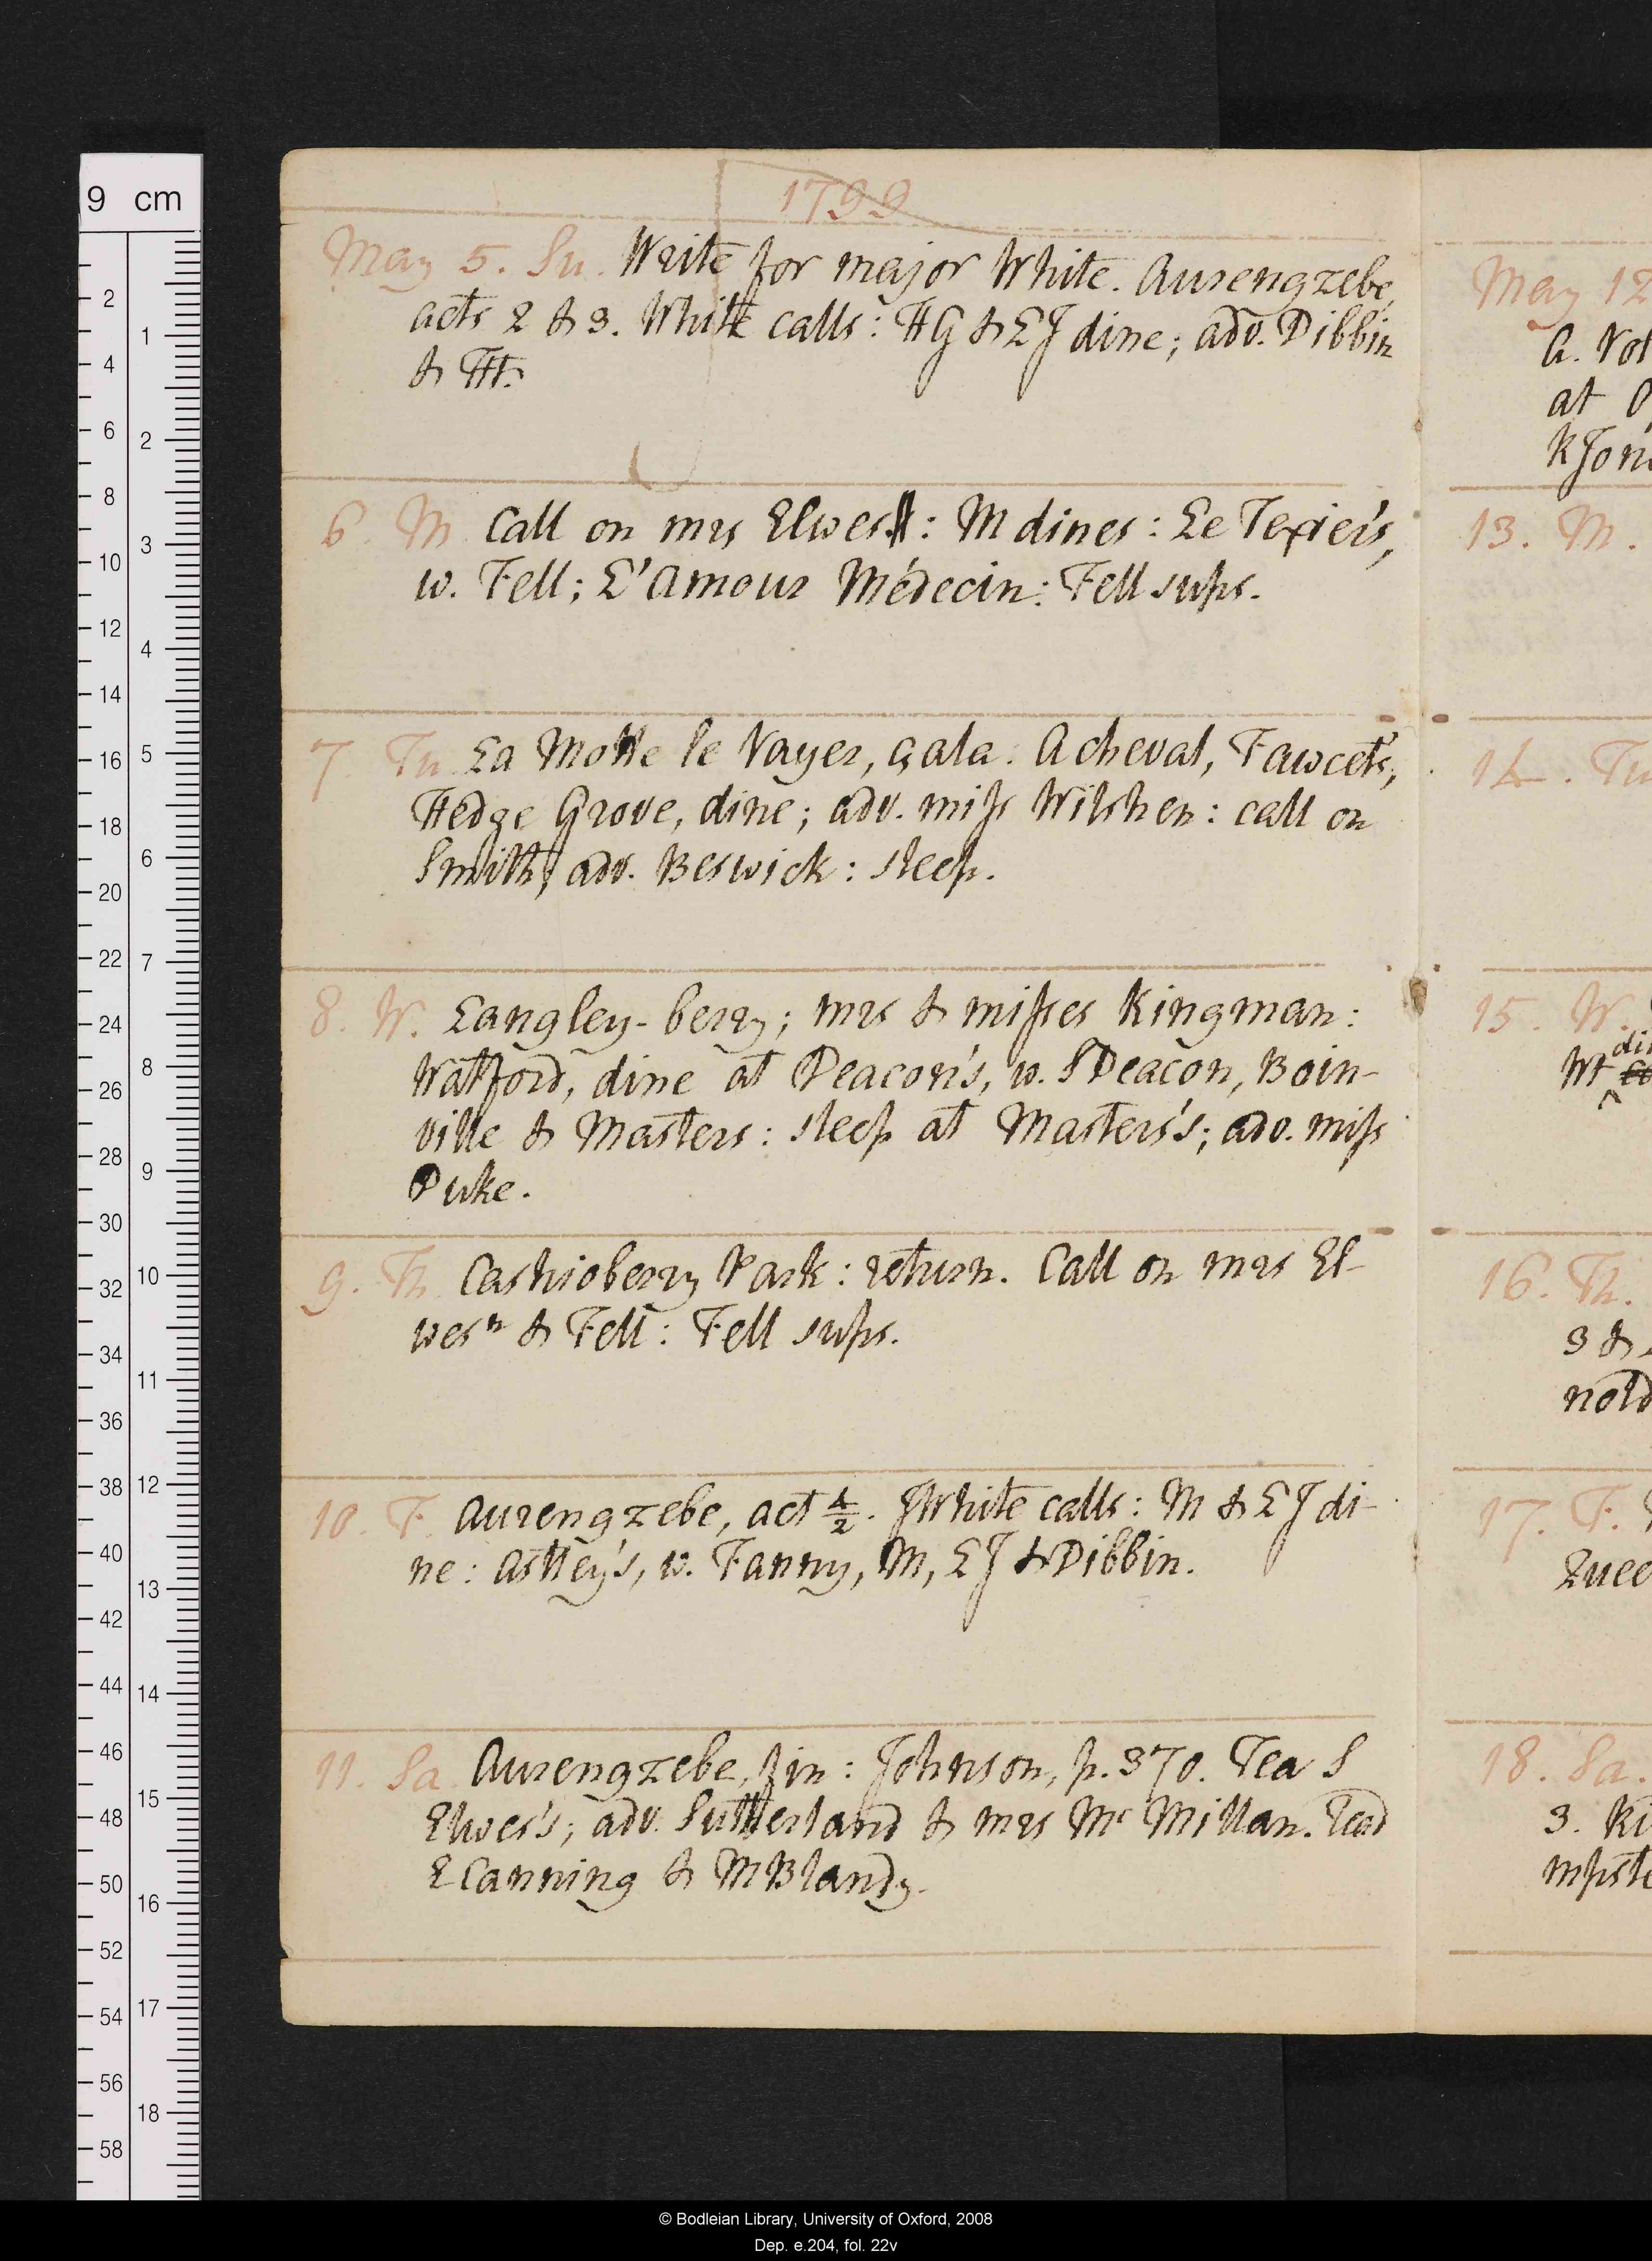 1799
May 5. Su. Write for major White. Aurengzebe,
acts 2 & 3. White calls: HG & LJ dine; adv. Dibbin
& TH.
6. M. Call on mrs Elwes: M dines: Le Texier's,
w. Fell; L'Amour Médecin: Fell sups.
7. Tu. La Motte le Vayer, çala. A cheval, Fawcet's,
Hedge Grove, dine; adv. miss Wilshen: call on
Smith, adv. Beswick: sleep.
8. W. Langley-berry; mrs & misses Kingman:
Watford, dine at Deacon's, w. S Deacon, Boin-
ville & Masters: sleep at Masters's; adv. miss
Duke.
9. Th. Cashioberry Park: return. Call on mrs El-
wes n & Fell: Fell sups.
10. F. Aurengzebe, act 4/2. JWhite calls: M & LJ di-
ne: Astley's, w. Fanny, M, LJ & Dibbin.
11. Sa. Aurengzebe, fin: Johnson, p. 370. Tea S
Elwes's; adv. Sutherland & mrs Mc Millan.
E Canning & M Blandy.
May 12
A.
at
13. M.
14. Tu
15. W.
16. Th.
3 &
17. F.
18. Sa.
3.
9 cm
2
4
6
8
10
12
14
16
18
20
22
24
26
28
30
32
34
36
38
40
42
44
46
48
50
52
54
56
58
1
2
3
4
5
6
7
8
9
10
11
12
13
14
15
16
17
18
© Bodleian Library, University of Oxford, 2008
Dep. e.204, fol. 22v